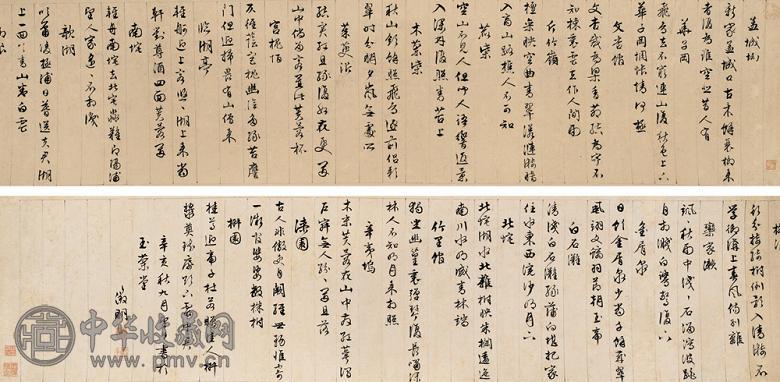 孟城坳
新家孟城口古木餘衰柳來
者復為誰空悲昔人有
華子岡
飛鳥去不窮連山復秋色上下
華子岡惆悵情何極
文杏館
文杏裁為梁香茅結為宇不
知棟裏雲去作人間雨
斤竹嶺
檀欒映空曲青翠漾漣漪暗
入商山路樵人不可知
鹿柴
空山不見人但聞人語響返景
入深林復照青苔上
木蘭柴
秋山斂餘照飛鳥逐前侶彩
翠時分明夕嵐無處所
茱萸沜
結實紅且綠復如花更開
山中儻留客置此芙蓉杯
宮槐陌
仄徑蔭宮槐幽陰多綠苔應
門但迎掃畏有山僧來
臨湖亭
輕舸迎上客悠悠湖上來當
軒對尊酒四面芙蓉開
南垞
輕舟南垞去北垞淼難即隔浦
望人家遙遙不相識
欹湖
吹簫凌極浦日暮送夫君湖
上一回首青山卷白雲
柳浪
形分接綺樹倒影入清漪不
學御溝上春風傷別離
欒家瀨
颯颯秋雨中淺淺石溜瀉波跳
自相濺白鷺驚復下
金屑泉
日飲金屑泉少當千餘歲翠
鳳翊文螭羽節朝玉帝
白石灘
清淺白石灘綠蒲向堪把家
住水東西浣紗明月下
北垞
北垞湖水北雜樹映朱欄逶迤
南川水明滅青林端
竹里館
獨坐幽篁裏彈琴復長嘯深
林人不知明月來相照
辛夷塢
木末芙蓉花在山中發紅萼澗
戶寂無人紛紛開且落
漆園
古人非傲吏自闕經世務惟寄
一微官婆娑數株樹
椒園
桂尊迎帝子杜若贈佳人椒
漿奠瑤席欲下雲中君
辛亥秋九月書於
玉蘭堂
徵明
中华收藏网
www.pmv.cn